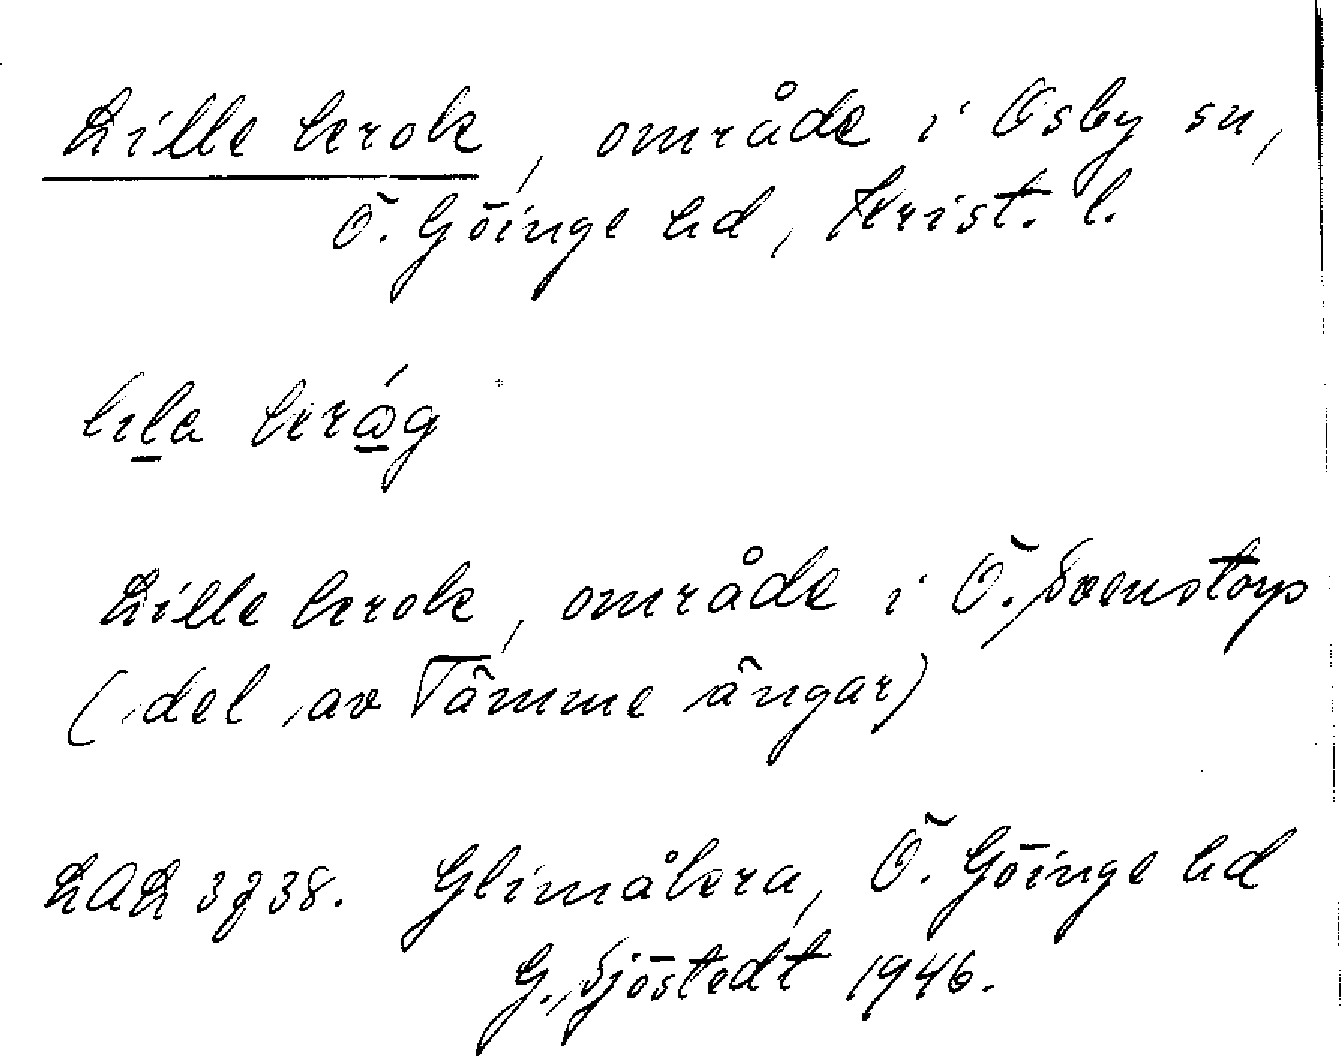 Lille krok, område i Osby sn,
Ö. Göinge hd, Krist. l.
lıla krǻg
Lille krok, område i Ö. Svenstorp
(del av Tämme ängar)
LAL 3738. Glimåkra, Ö. Göinge hd
G. Sjöstedt 1946.